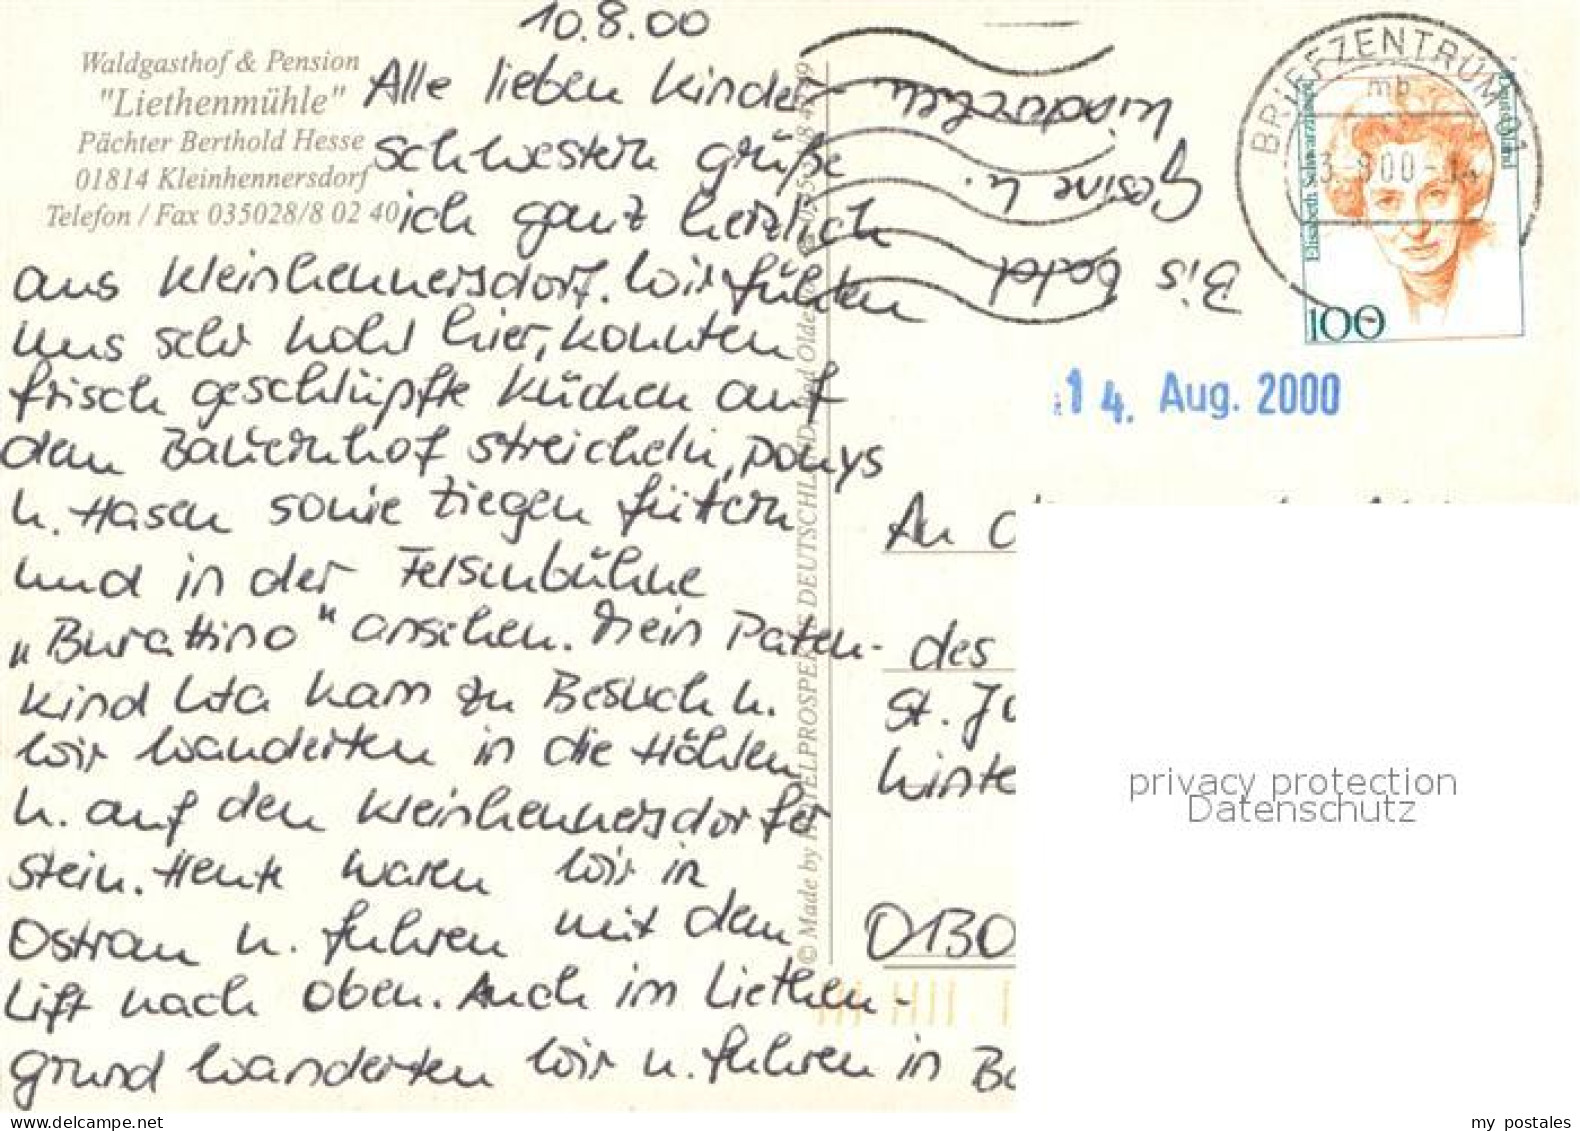 10.8.00
Waldgasthof & Pension
"Liethenmühle"
Pächter Berthold Hesse
01814 Kleinhennersdorf
Telefon / Fax 035028/8 02 40
Alle lieben Kinder-
schwestern grüße
ich ganz herzlich
aus Kleinhennersdorf. Wir fühlen
uns sehr wohl hier, konnten
frisch geschlüpfte Kücken auf
dem Bauernhof streicheln, Ponys
u. Hasen sowie Ziegen füttern
und in der Felsenbühne
„Burattino" ansehen. Mein Paten-
kind Uta kam zu Besuch u.
wir wanderten in die Höhlen
u. auf den Kleinhennersdorfer
Stein. Heute waren wir in
Ostrau u. fuhren mit dem
Lift nach oben. Auch im Liethen-
grund wanderten wir u. fuhren in
Bis bald
Gesine u.
© Made by HOTELPROSPEKTS DEUTSCHLAND
BRIEFZENTRUM 01
mb
Elisabeth Schwarzhaupt
100
14. Aug. 2000
An
des
St.
privacy protection
Datenschutz
my postales